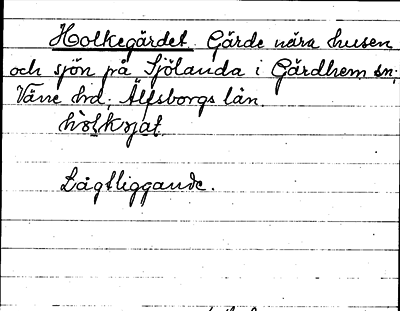 Holkegärdet. Gärde nära husen
och sjön på Sjölanda i Gärdhem sn;
Väne hd; Älfsborgs län.
Lågtliggande.